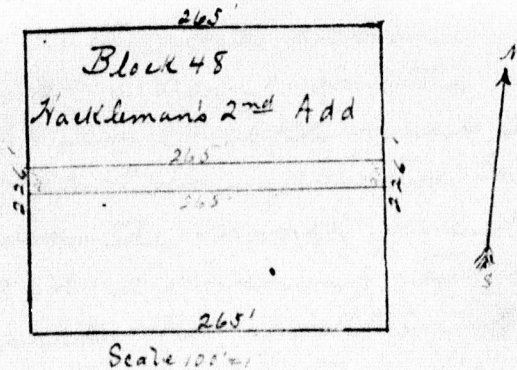 265'
Block 48
Hackleman's 2nd Add
N
265
226'
265
226'
S
265'
Scale 100'=1